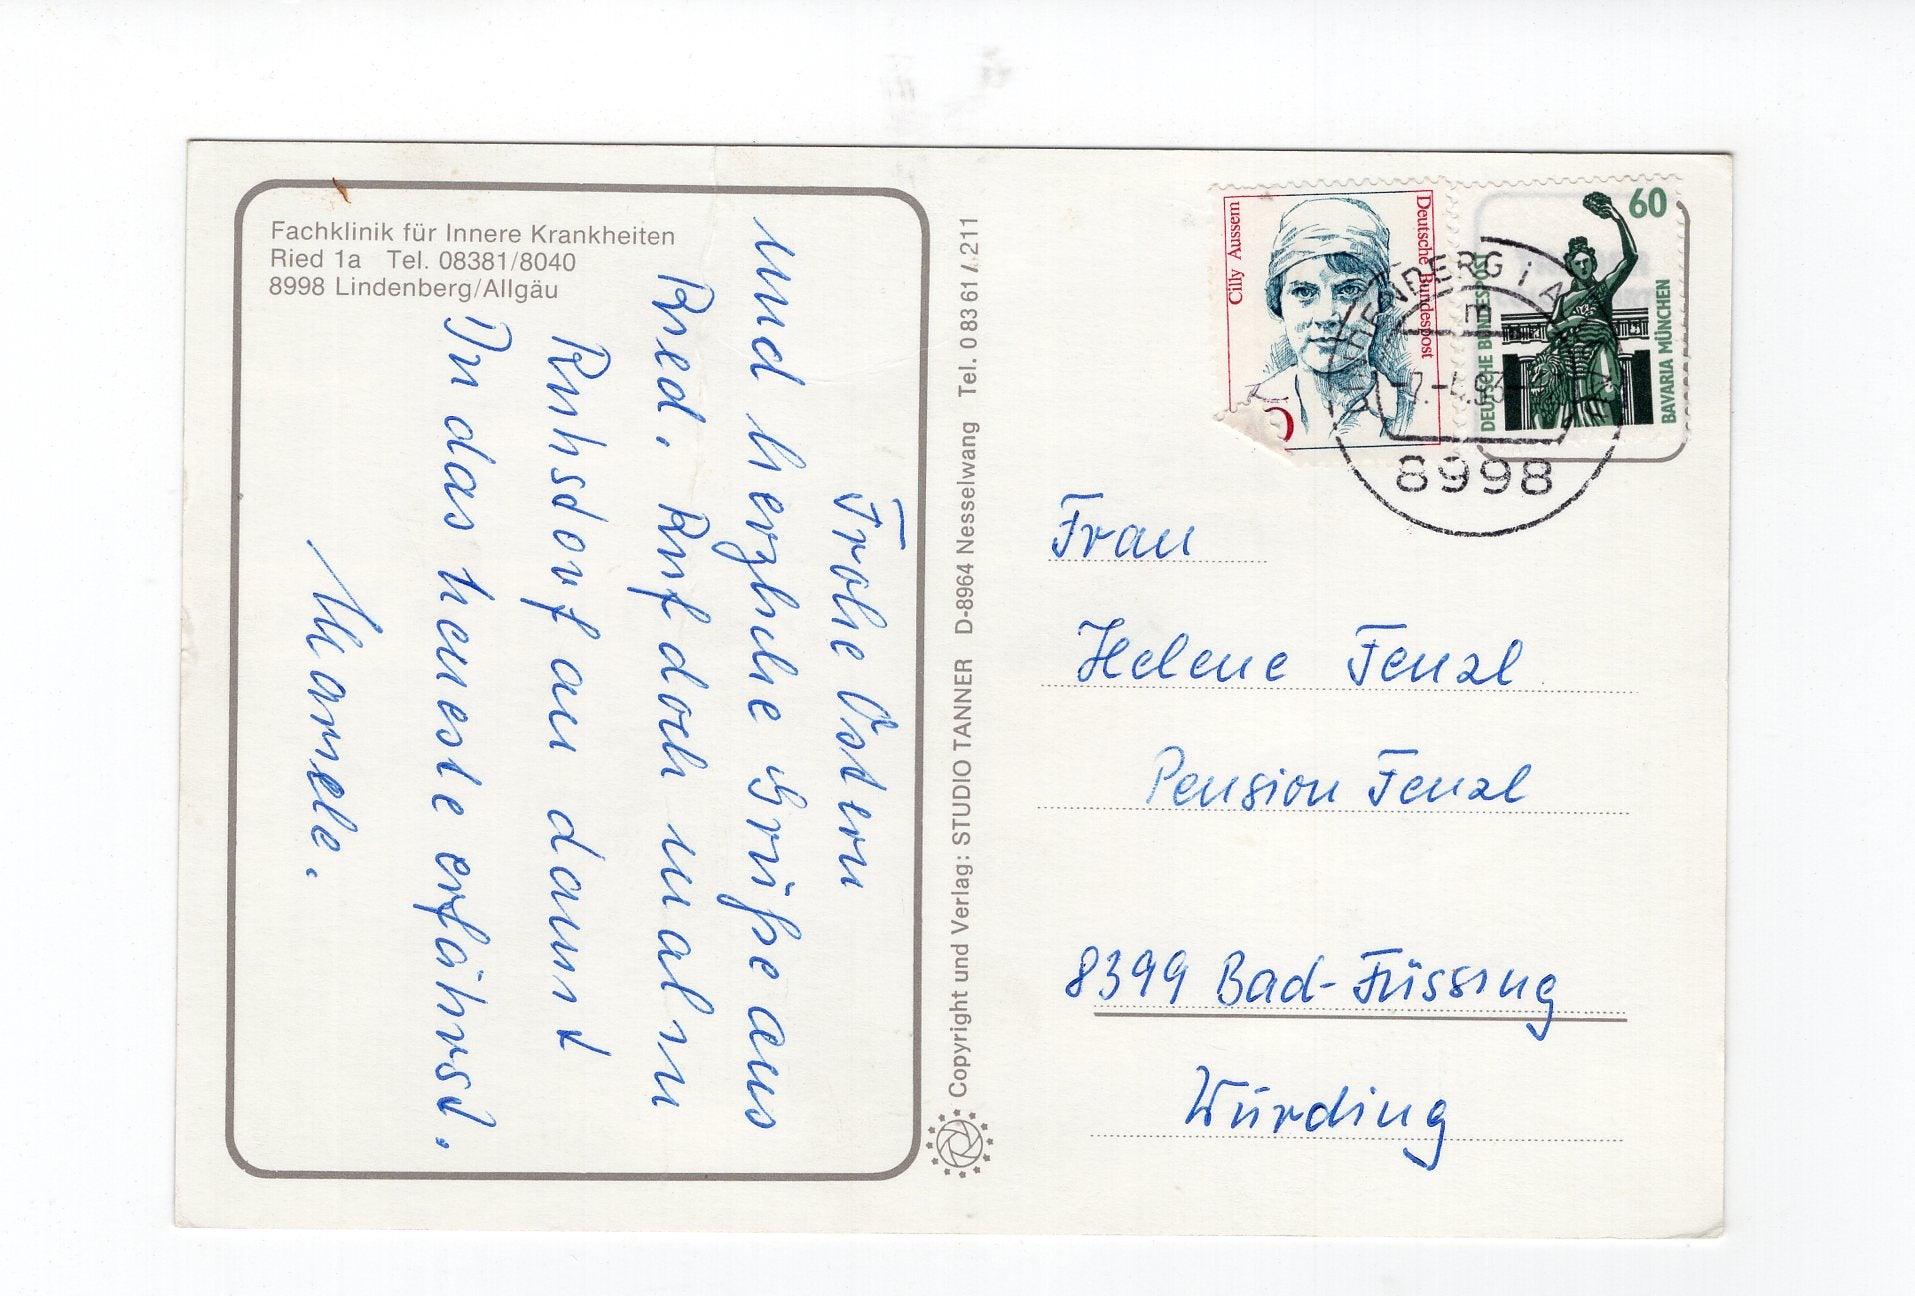 Fachklinik für Innere Krankheiten
Ried 1a Tel. 08381/8040
8998 Lindenberg/Allgäu
Frohe Ostern
und herzliche Grüße aus
Ried. Ruf doch mal in
Ruhsdorf an damit
Du das neueste erfährst.
Mariele.
Copyright und Verlag: STUDIO TANNER D-8964 Nesselwang Tel. 0 83 61 / 211
Cilly Aussem
Deutsche Bundespost
60
DEUTSCHE BUNDESPOST
BAVARIA MÜNCHEN
LINDENBERG i
m
8998
Frau
Helene Fenzl
Pension Fenzl
8399 Bad-Füssing
Würding